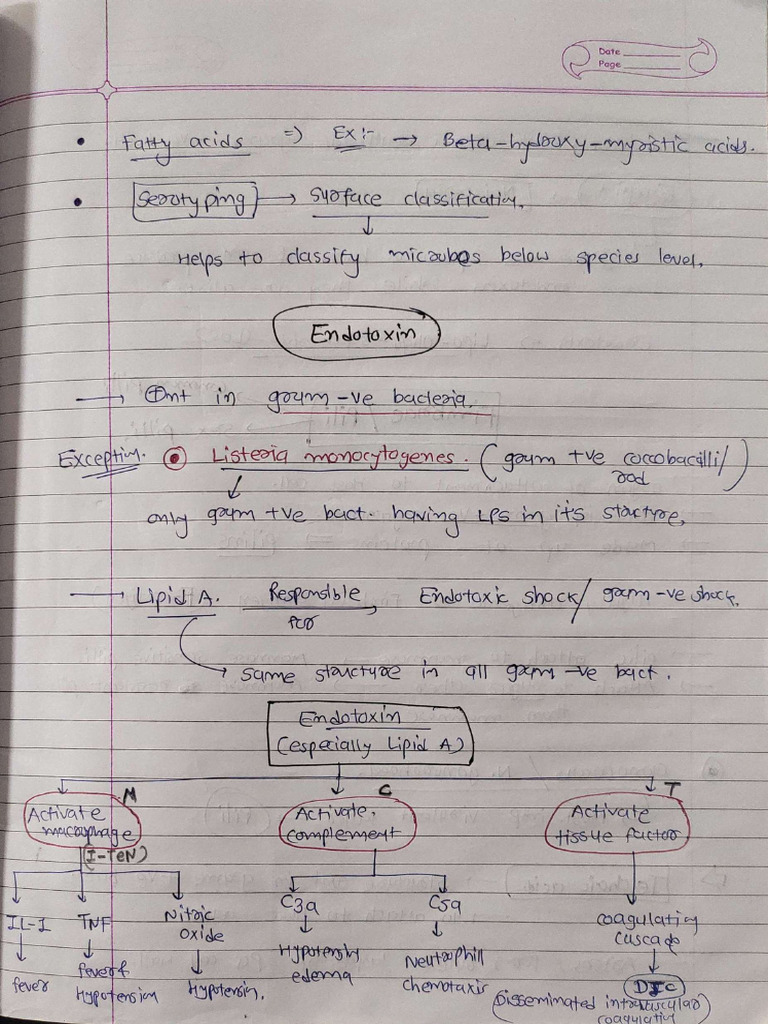 Date
Page
• Fatty acids => Ex:- → Beta-hydroxy-myristic acids.
• Serotyping → Surface classification.
↓
Helps to classify microbes below species level.
Endotoxin
→ ⊕nt in gram -ve bacteria.
Exception. Listeria monocytogenes. (gram +ve coccobacilli/
rod)
↓
only gram +ve bact. having LPS in it's structure.
→ Lipid A. Responsible for → Endotoxic shock/ gram -ve shock.
→ same structure in all gram -ve bact.
Endotoxin
(especially Lipid A)
M C T
Activate macrophage
(I-TeN)
Activate complement
Activate tissue factor
IL-1 TNF Nitric oxide
C3a C5a
coagulation cascade
fever
fever & Hypotension
Hypotension.
Hypotension edema
Neutrophill chemotaxis
DIC
(Disseminated intravascular coagulation)